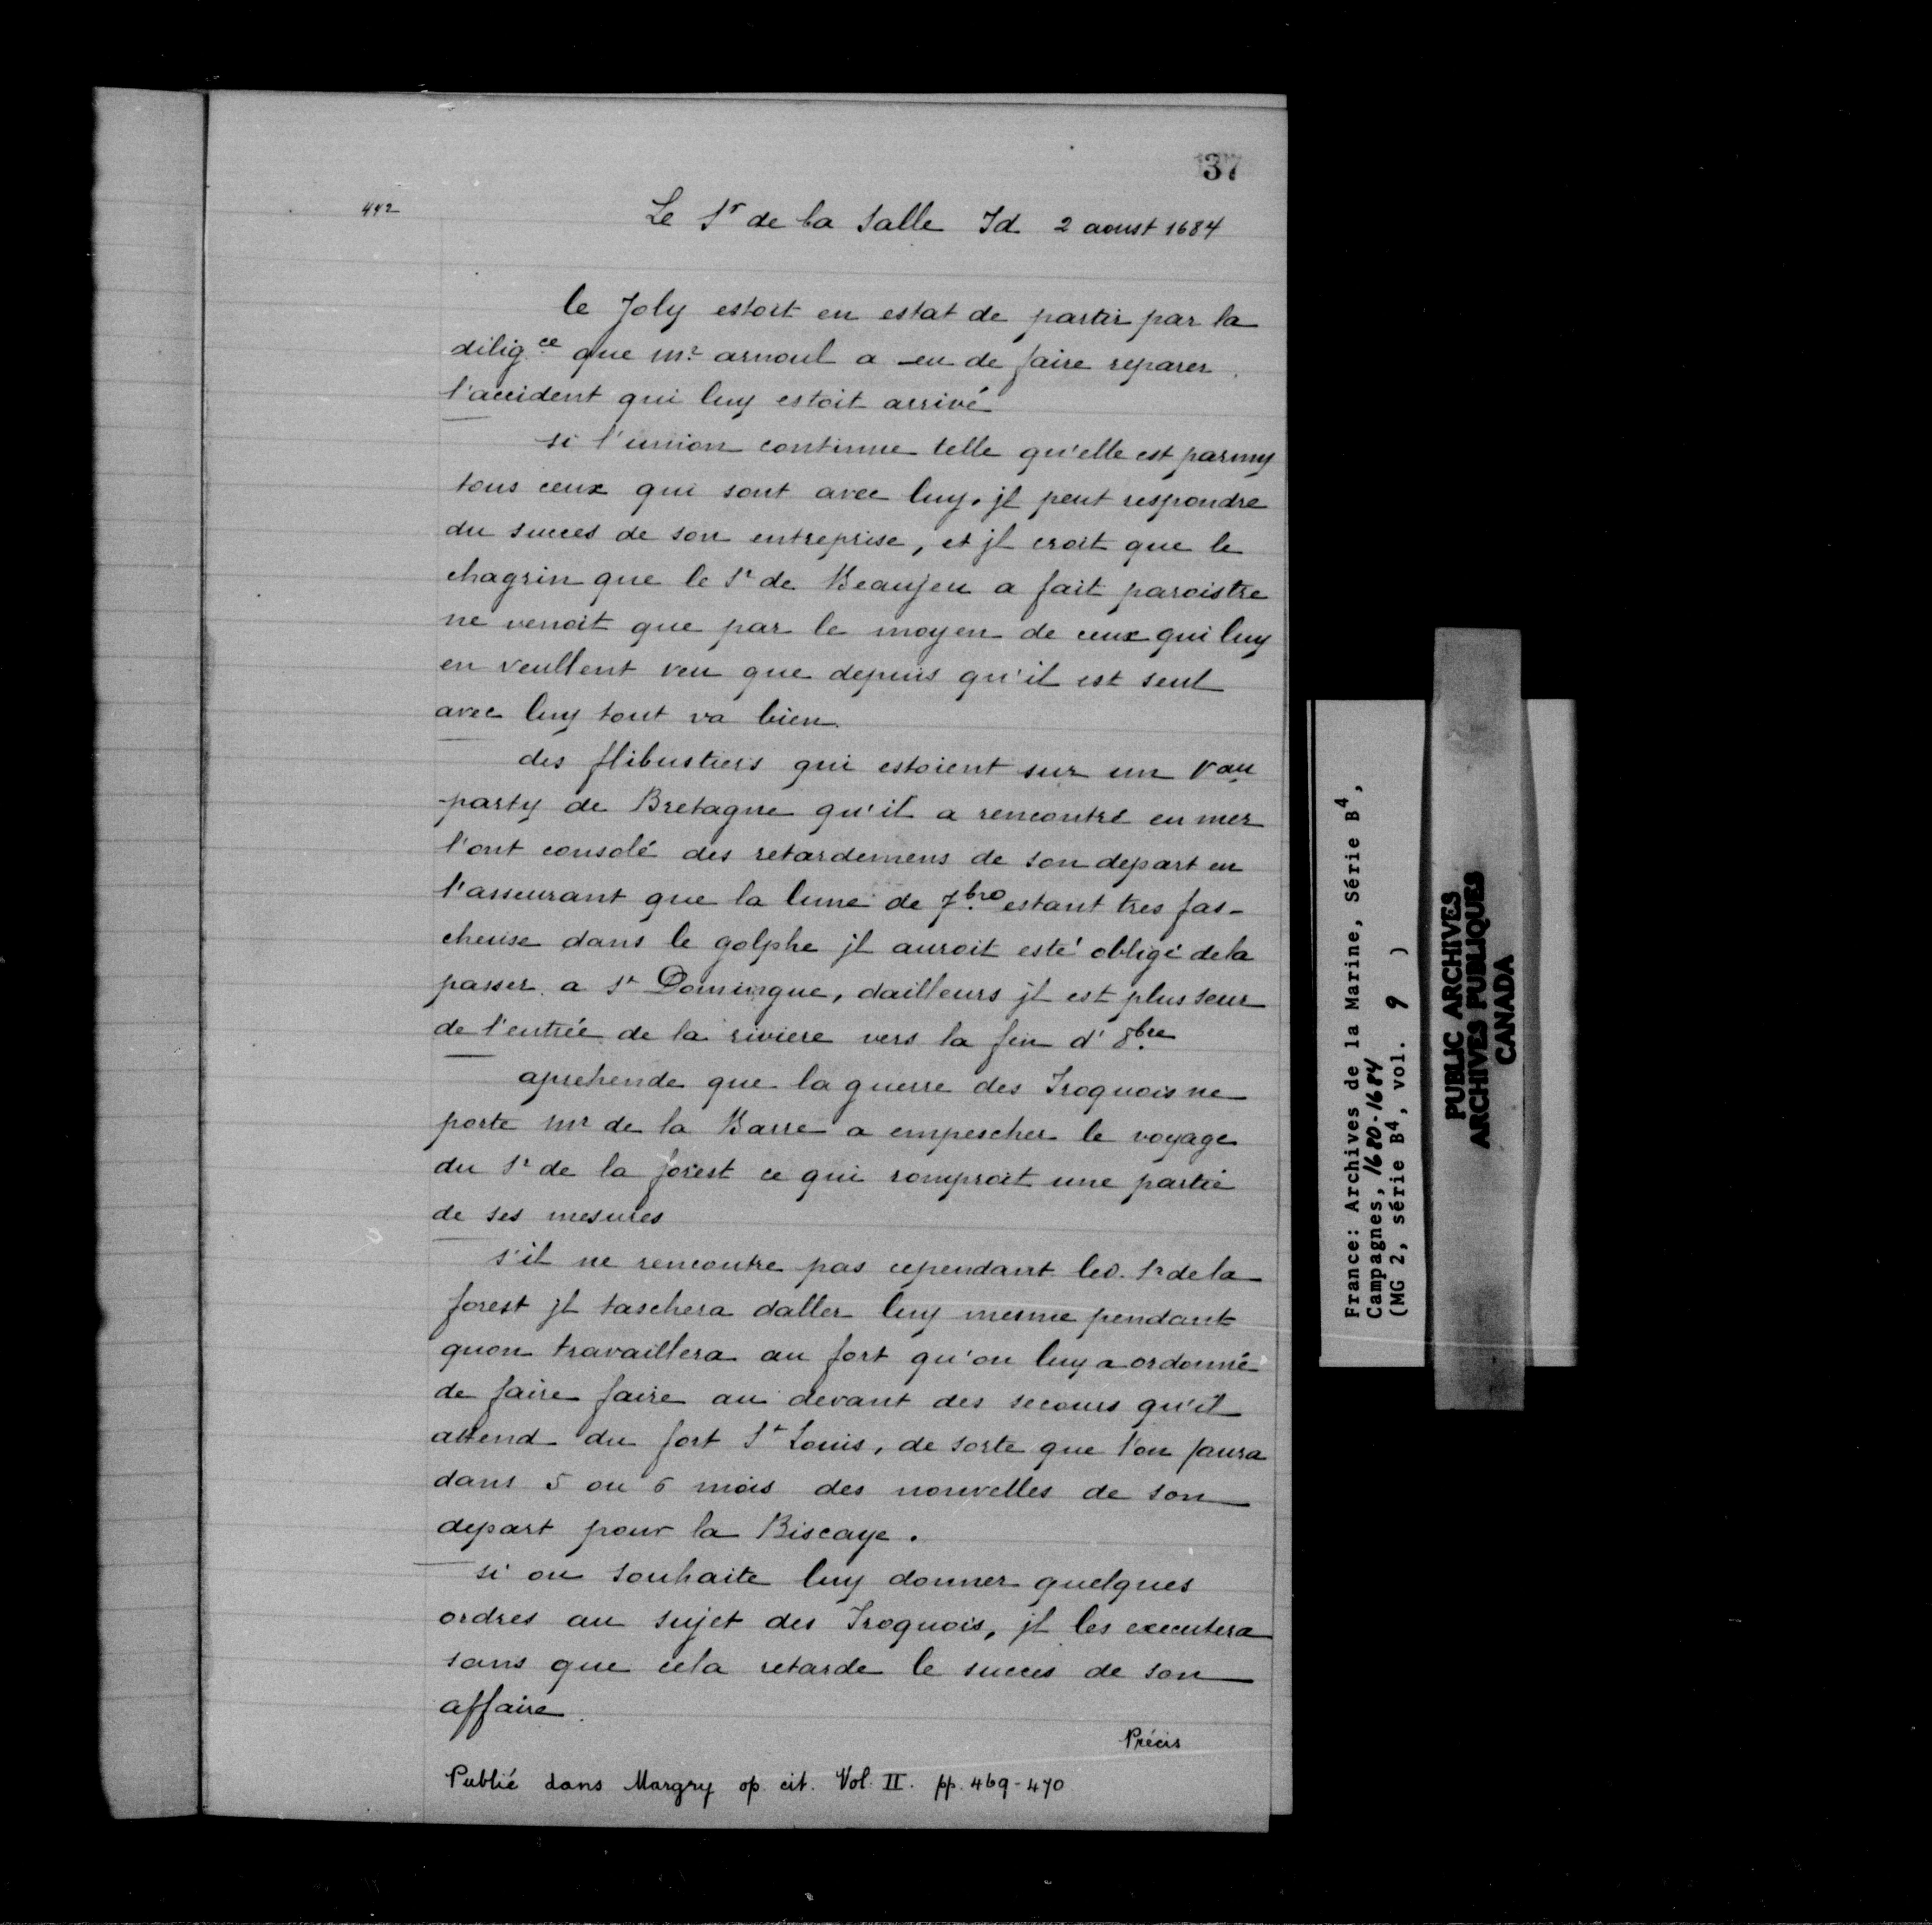 37
442
Le Sr de la Salle Id. 2 aoust 1684
le Joly estoit en estat de partir par la
dilig.ce que mr. arnoul a eu de faire reparer
l'accident qui luy estoit arrivé
si l'union continue telle qu'elle est parmy
tous ceux qui sont avec luy, jl peut respondre
du succes de son entreprise, et jl croit que le
chagrin que le Sr de Beaujeu a fait paroistre
ne venoit que par le moyen de ceux qui luy
en veullent veu que depuis qu'il est seul
avec luy tout va bien.
des flibustiers qui estoient sur un Vau
party de Bretagne qu'il a rencontré en mer
l'ont consolé des retardemens de son depart en
l'asseurant que la lune de 7bre estant tres fas-
cheuse dans le golphe jl auroit esté obligé de la
passer a St Domingue, dailleurs jl est plus seur
de l'entrée de la riviere vers la fin d'8bre
aprehende que la guerre des Iroquois ne
porte Mr de la Barre a empescher le voyage
du Sr de la forest ce qui romproit une partie
de ses mesures
s'il ne rencontre pas cependant led. Sr de la
forest jl taschera daller luy mesme pendant
quon travaillera au fort qu'on luy a ordonné
de faire faire au devant des secours qu'il
attend du fort St Louis, de sorte que l'on saura
dans 5 ou 6 mois des nouvelles de son
depart pour la Biscaye.
si on souhaite luy donner quelques
ordres au sujet des Iroquois, jl les executera
sans que cela retarde le succes de son
affaire.
Précis
Publié dans Margry op. cit. Vol. II. pp. 469-470
France: Archives de la Marine, Série B4,
Campagnes, 1680-1684
(MG 2, série B4, vol. 9 )
PUBLIC ARCHIVES
ARCHIVES PUBLIQUES
CANADA